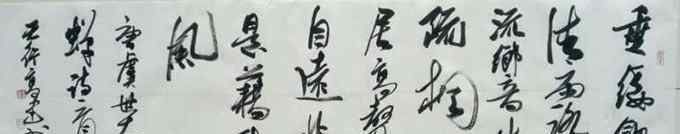 垂緌飲
清露
流響出
疏桐
居高聲
自遠非
是藉
風
唐虞世
蟬詩